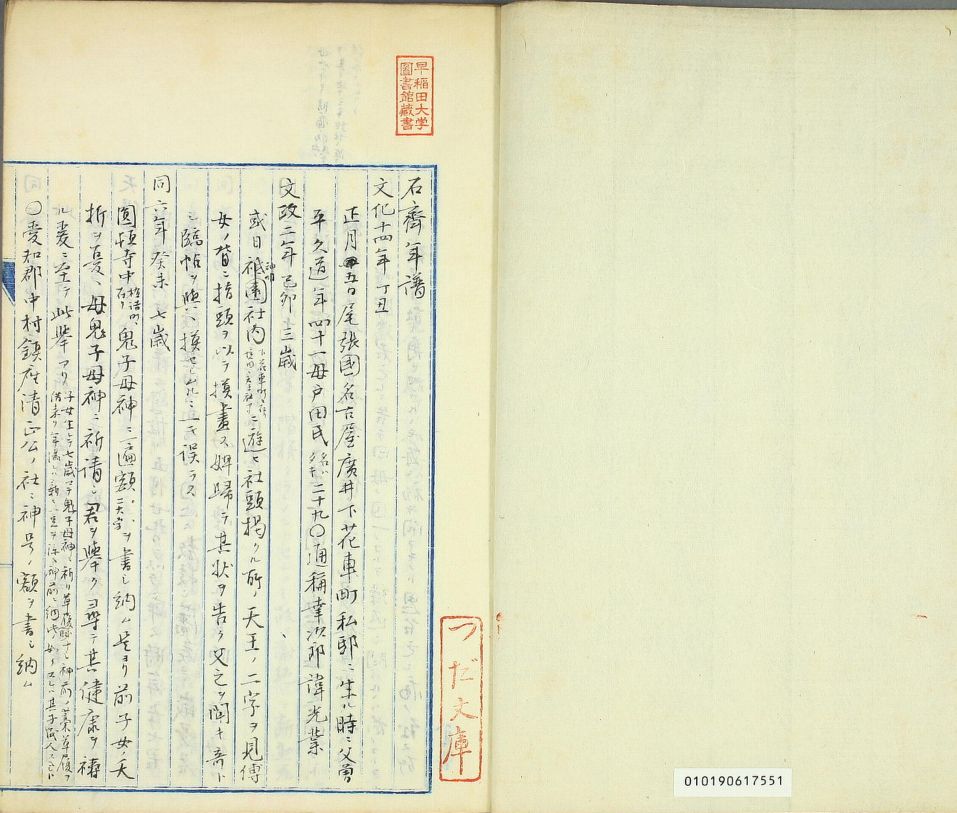 早稲田大学
圖書館藏書
石齋年譜
文化十四年丁丑
正月五日尾張國名古屋廣井下花車町私邸ニ生ル時ニ父
平久道年四十一母戸田氏二十九〇通稱幸次郎諱光業
文政二年己卯三歳
或日祗園社内ニ遊ヒ社頭掲クル所ノ天王ノ二字ヲ見傅
女ノ背ニ指頭ヲ以テ摸畫ス婢歸テ其状ヲ告ク父之ヲ聞キ奇ト
シ臨帖ヲ與ヘ摸セシムルニ一モ誤ラス
同六年癸未七歳
圓頓寺中鬼子母神ニ遍額二大字ヲ書シ納ム是ヨリ前子女ノ夭
折ヲ憂ヘ母鬼子母神ニ祈請シ君ヲ擧ク尋テ其健康ヲ禱
ル爰ニ至テ此擧アリ
〇愛知郡中村鎮座清正公ノ社ニ神号ノ額ヲ書シ納ム
つだ文庫
010190617551